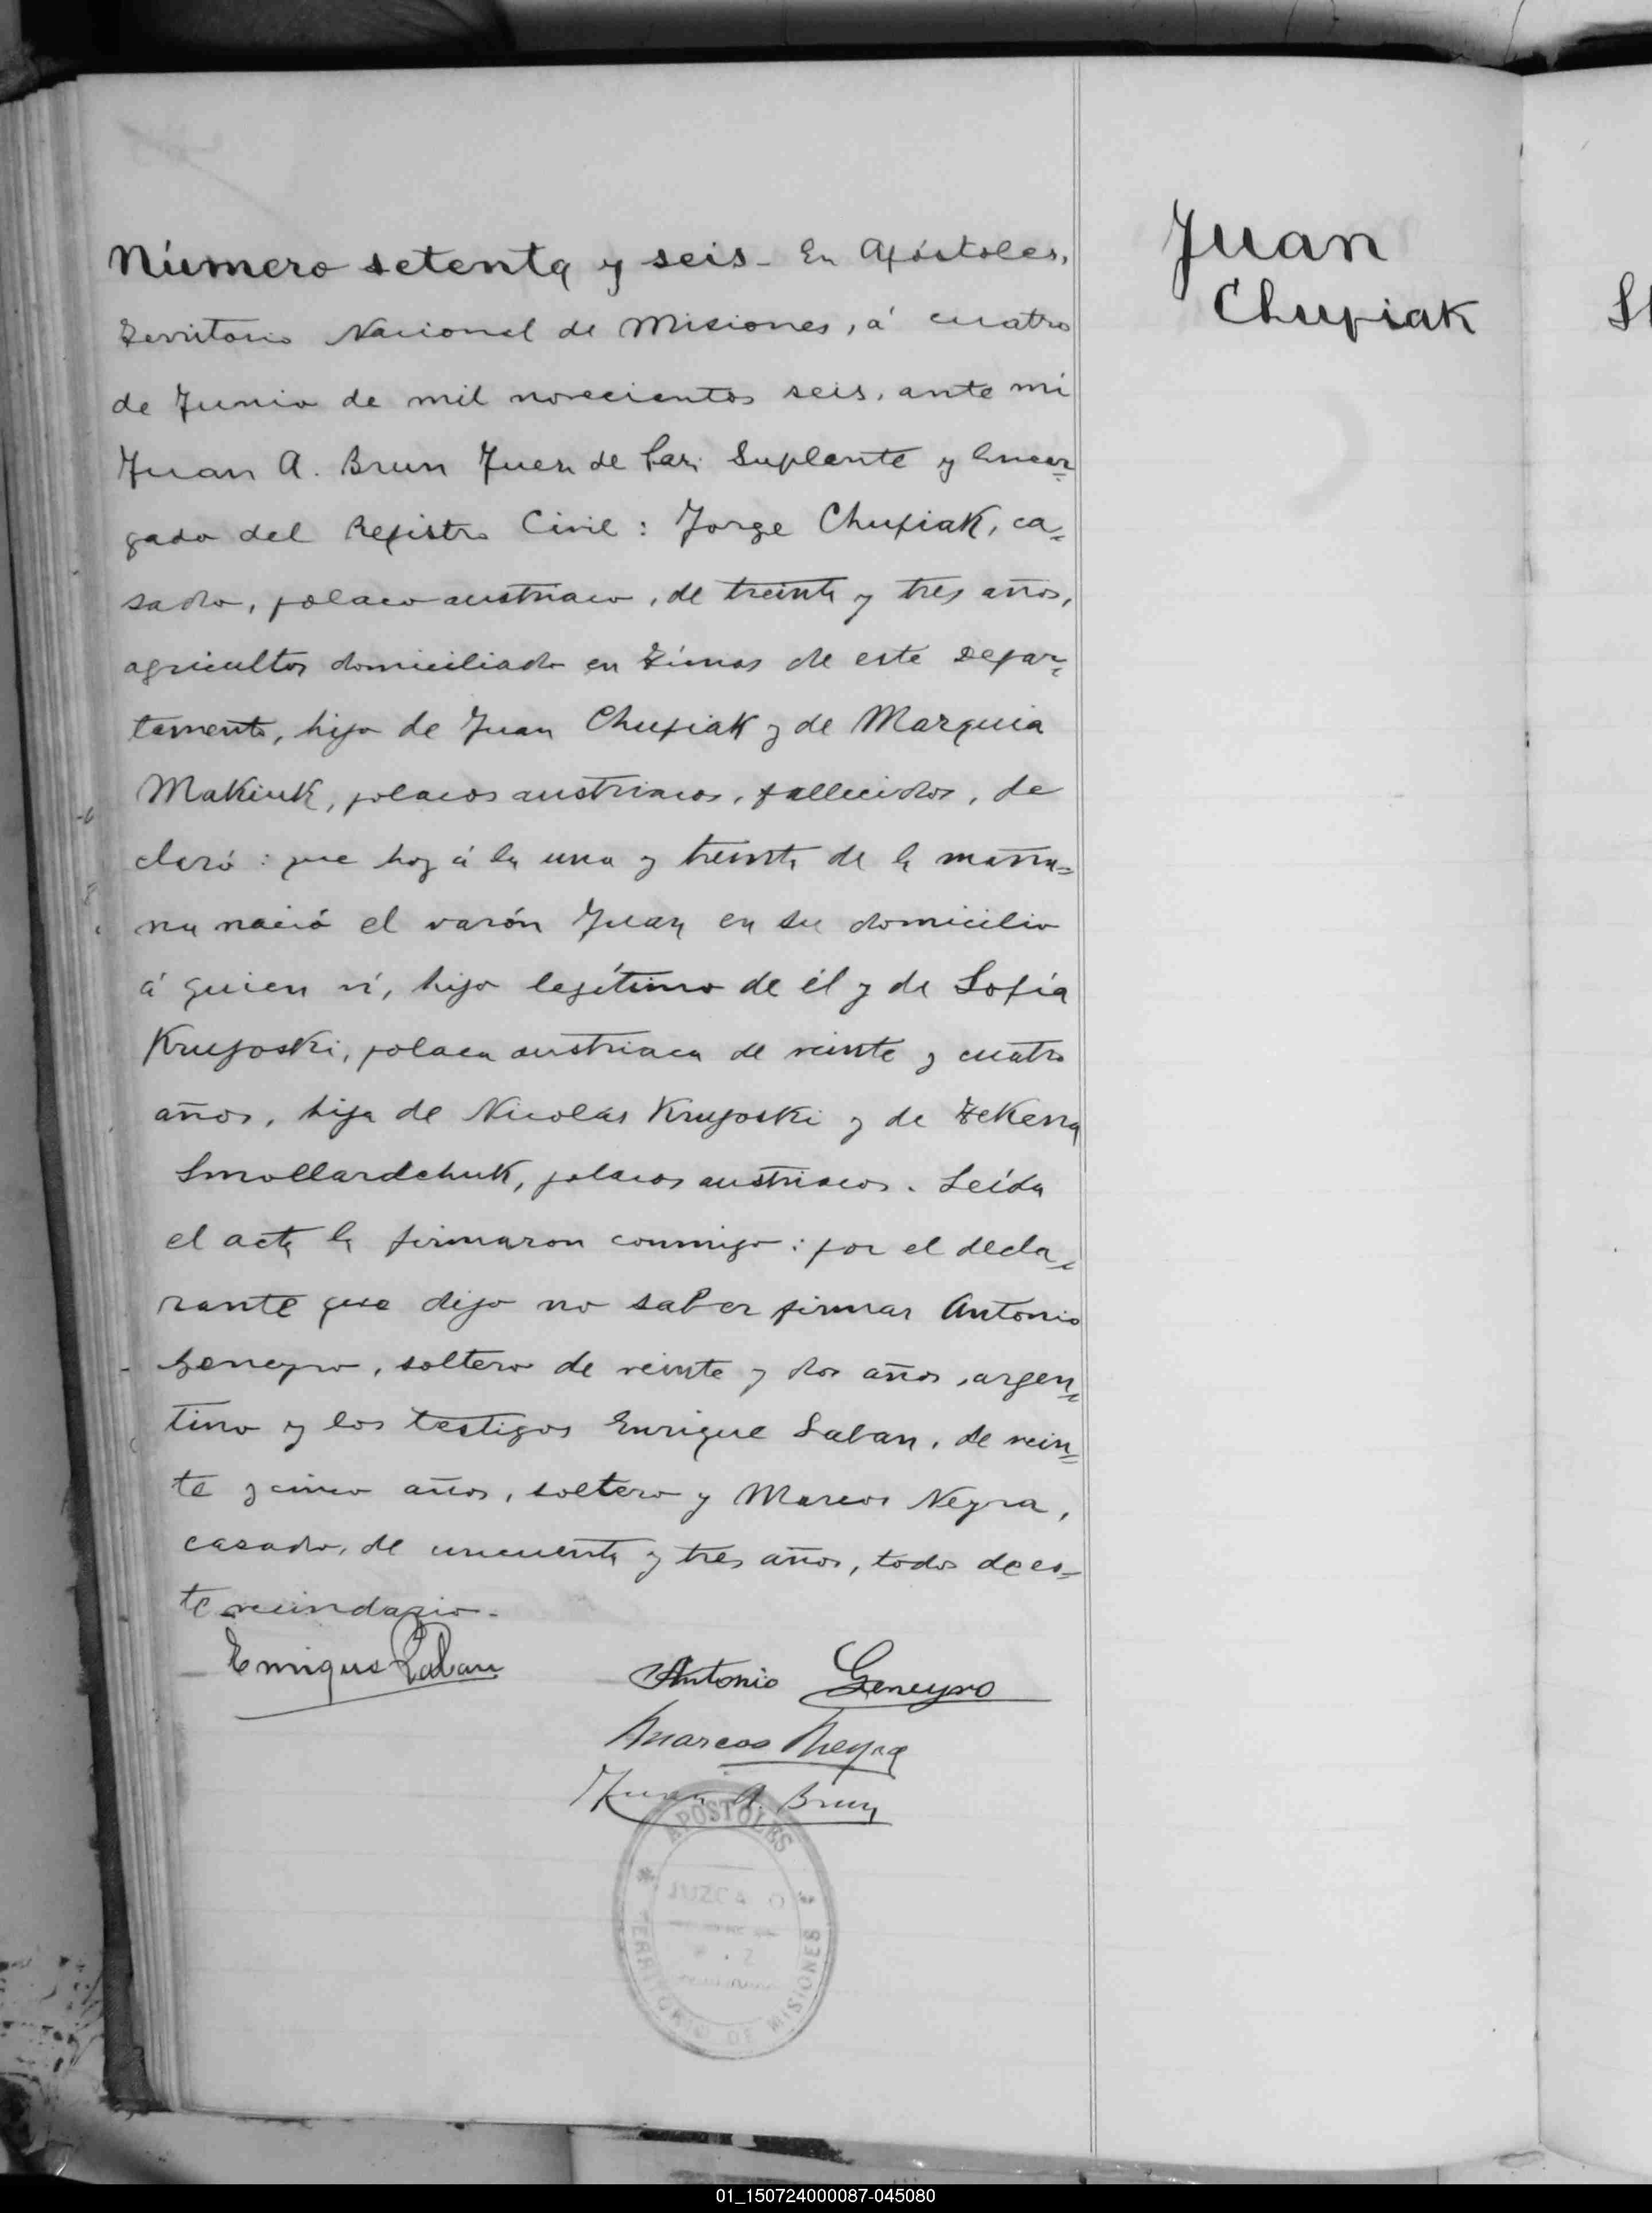 Número setenta y seis - En Apóstoles,
Territorio Nacional de Misiones, á cuatro
de Junio de mil novecientos seis, ante mi
Juan A. Brun Juez de Paz Suplente y Encar=
gado del Registro Civil: Jorge Chupiak, ca=
sado, polaco austriaco, de treinta y tres años,
agricultor domiciliado en de este Depar=
tamento, hijo de Juan Chupiak y de Marquia
Makiuk, polacos austriacos, fallecidos, de
claró: que hoy á la una y treinta de la maña=
na nació el varón Juan en su domicilio
á quien ví, hijo legítimo de él y de Sofía
Krujoski, polaca austriaca de veinte y cuatro
años, hija de Nicolás Krujoski y de Tekena
Smollardchuk, polacos austriacos. Leída
el acta la firmaron conmigo: por el decla=
rante que dijo no saber firmar Antonio
Geneyro, soltero de veinte y dos años, argen=
tino y los testigos Enrique Laban, de vein=
te y cinco años, soltero y Marcos Neyra,
casado, de cincuenta y tres años, todos de es=
te vecindario.
Enrique Laban
Antonio Geneyro
Marcos Neyra
Juan A. Brun
APOSTOLES
JUZGADO
TERRITORIO DE MISIONES
Juan
Chupiak
01_150724000087-045080